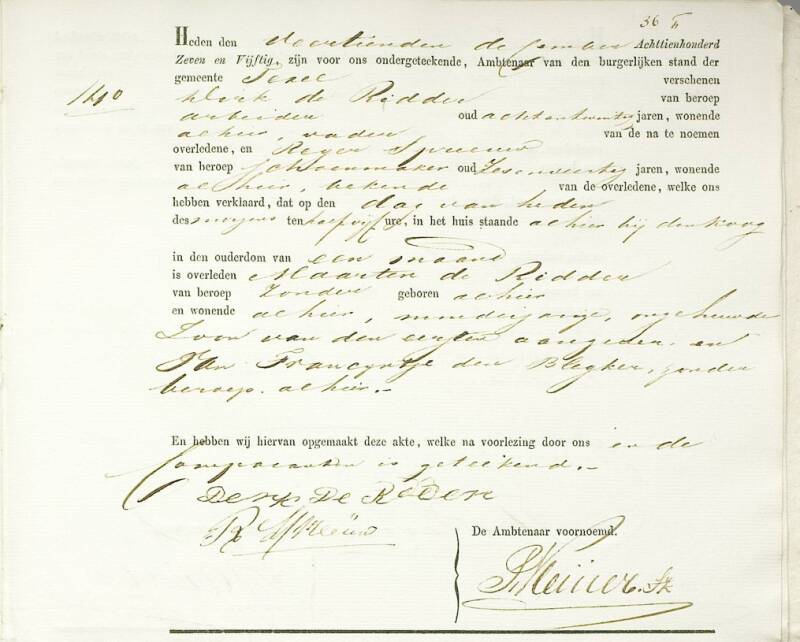 36
Heden den Veertienden december Achttienhonderd
Zeven en Vijftig, zijn voor ons ondergeteekende, Ambtenaar van den burgerlijken stand der
gemeente Texel verschenen
140 Dirk de Ridder van beroep
arbeider oud achtentwintig jaren, wonende
alhier, vader van de na te noemen
overledene, en Reyer Spreeuw
van beroep Schoenmaker oud Zesenveertig jaren, wonende
alhier, bekende van de overledene, welke ons
hebben verklaard, dat op den dag van heden
des morgens ten half vijf ure, in het huis staande alhier bij den Koog
in den ouderdom van een maand
is overleden Maarten de Ridder
van beroep Zonder geboren alhier
en wonende alhier, minderjarige, ongehuwde
Zoon van den eersten aangever en
van Francyntje den Blegker, zonder
beroep alhier.-
En hebben wij hiervan opgemaakt deze akte, welke na voorlezing door ons en de
Comparanten is geteekend.-
Derk De Ridder
R Spreeuw
De Ambtenaar voornoemd.